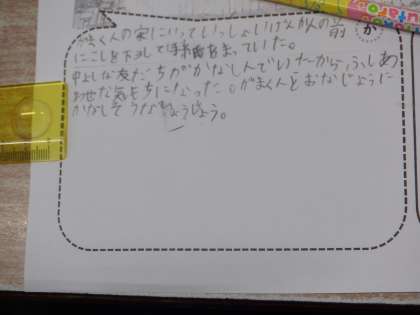 がまくんの家にいっていっしょにげんかんの前
にこしを下ろして手紙をまっていた。
中よしな友だちがかなしんでいたから、ふしあ
わせな気もちになった。がまくんとおなじように
かなしそうなひょうじょう。
か